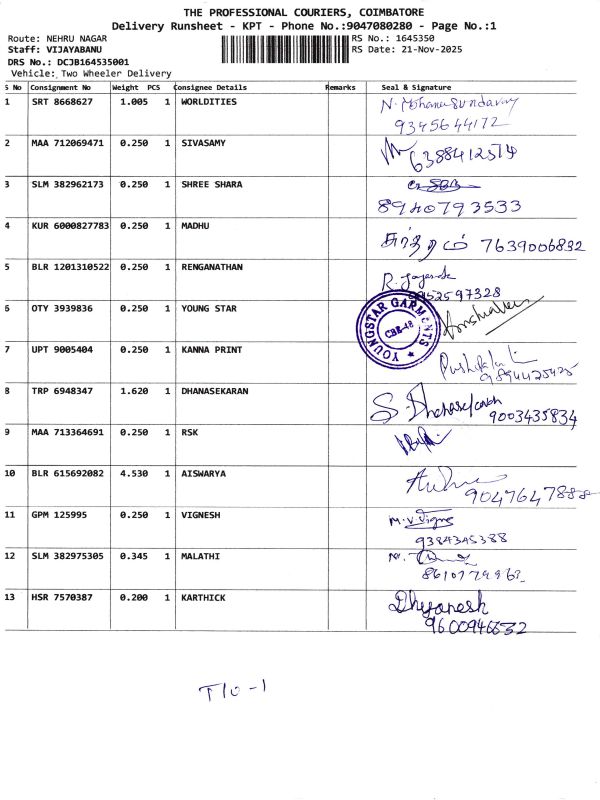 THE PROFESSIONAL COURIERS, COIMBATORE
Delivery Runsheet - KPT - Phone No.:9047080280 - Page No.:1
Route: NEHRU NAGAR
Staff: VIJAYABANU
DRS No.: DCJB164535001
Vehicle: Two Wheeler Delivery
RS No.: 1645350
RS Date: 21-Nov-2025
S No Consignment No Weight PCS Consignee Details Remarks Seal & Signature
1 SRT 8668627 1.005 1 WORLDITIES N. Mohanasundaray
9345644172
2 MAA 712069471 0.250 1 SIVASAMY 6388412514
3 SLM 382962173 0.250 1 SHREE SHARA
8940793533
4 KUR 6000827783 0.250 1 MADHU 7639006832
5 BLR 1201310522 0.250 1 RENGANATHAN R.
9952597328
6 OTY 3939836 0.250 1 YOUNG STAR
YOUNGSTAR GARMENTS
CBE-48
7 UPT 9005404 0.250 1 KANNA PRINT
8 TRP 6948347 1.620 1 DHANASEKARAN S. Dhanasekaran
9003435834
9 MAA 713364691 0.250 1 RSK
10 BLR 615692082 4.530 1 AISWARYA
9047647888
11 GPM 125995 0.250 1 VIGNESH M.V.Vigne
9384345388
12 SLM 382975305 0.345 1 MALATHI
13 HSR 7570387 0.200 1 KARTHICK Dhyanesh
9600946632
T10-1